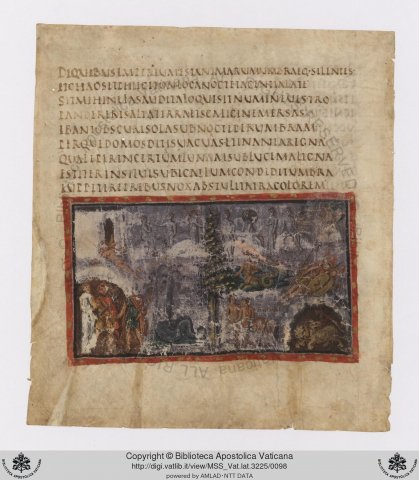 DIQUIBUSIMPERIUMESTANIMARUMUMBRAEQ·SILENTES
ETCHAOSETPHLEGETHONLOCANOCTETACENTIALATE
SITMIHIFASAUDITALOQUISITNUMINEUESTRO
PANDERERESALTATERRAETCALIGINEMERSAS
IBANTOBSCURISOLASUBNOCTEPERUMBRAM
PERQ·DOMOSDITISUACUASETINANIAREGNA
QUALEPERINCERTAMLUNAMSUBLUCEMALIGNA
ESTITERINSILUISUBICAELUMCONDIDITUMBRA
IUPPITERETREBUSNOXABSTULITATRACOLOREM
Copyright © Biblioteca Apostolica Vaticana
http://digi.vatlib.it/view/MSS_Vat.lat.3225/0098
powered by AMLAD-NTT DATA